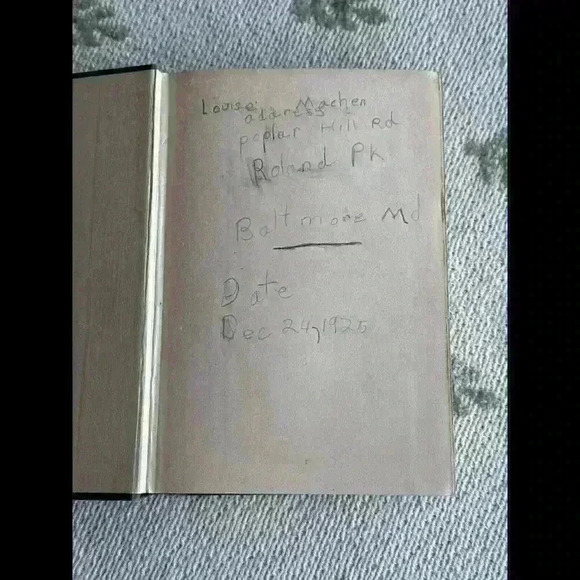 Louise Machen
adaress
poplar Hill Rd
Roland Pk
Baltmore Md
Date
Dec 24, 1925